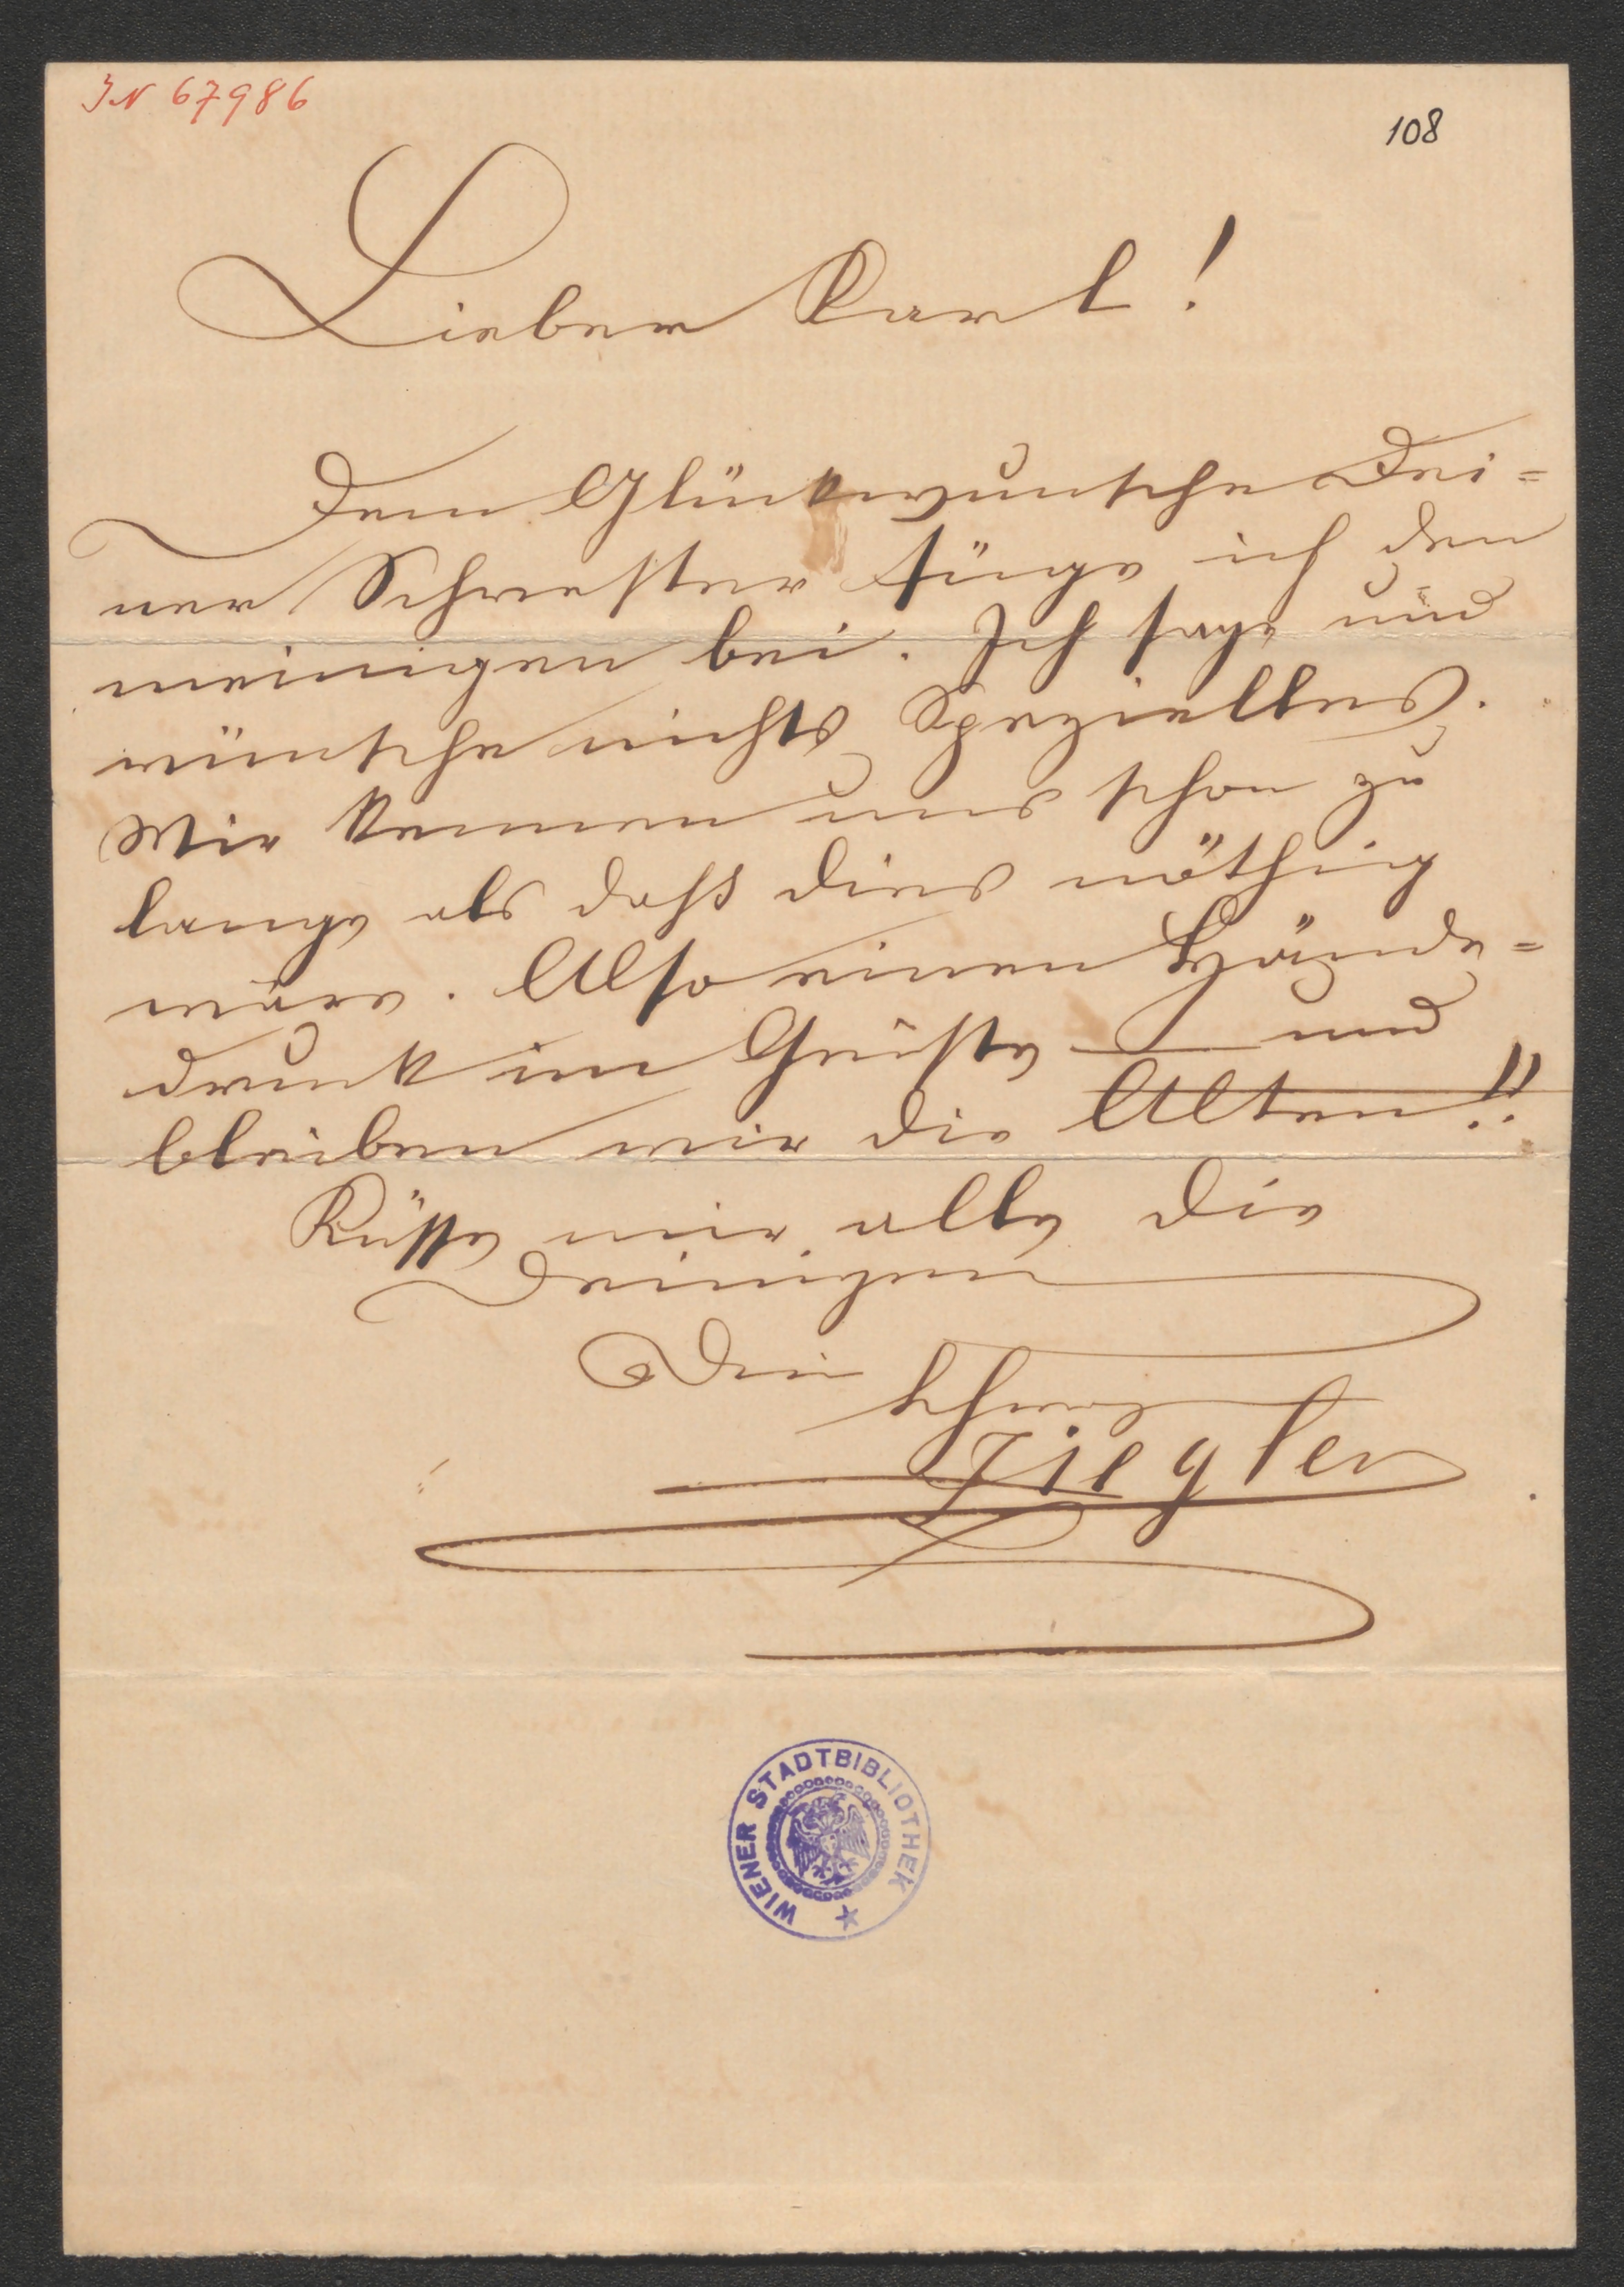 IN 67986
108
Lieber Karl!
Dem Glückwunsche Dei=
ner Schwester füge ich den
meinigen bei. Ich sage und
wünsche nichts Spezielles.
Wir kennen uns schon zu
lange als daß dies nöthig
wäre. Also einen Hände=
druck im Geiste — und
bleiben wir die Alten!!
Küsse mir alle die
Deinigen
Dein
Schwag
Ziegler
WIENER STADTBIBLIOTHEK